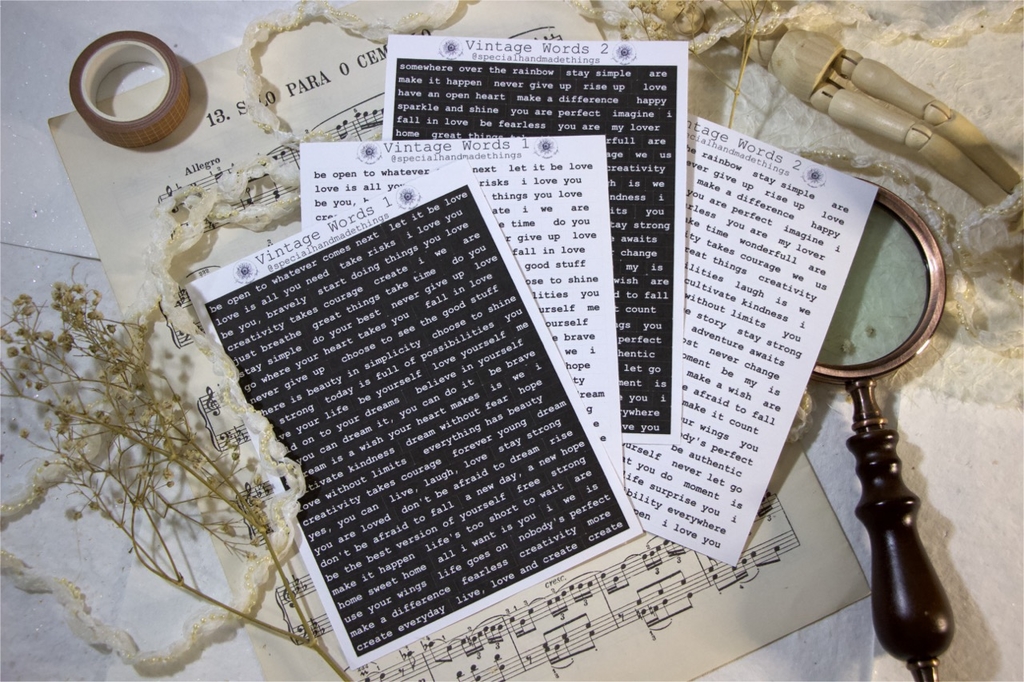 13. SOLO PARA O CEM
Allegro
cresc.
Vintage Words 2
@specialhandmadethings
somewhere over the rainbow stay simple are
make it happen never give up rise up love
have an open heart make a difference happy
sparkle and shine you are perfect imagine i
fall in love be fearless you are my lover
home great things
rfull are
age we us
creativity
h is we
ndness i
its you
tay strong
e awaits
change
my is
wish are
d to fall
count
ngs you
perfect
hentic
let go
ment is
you i
ywhere
ve you
Vintage Words 1
@specialhandmadethings
be open to whatever next let it be love
love is all you risks i love you
be you, things you love
cre ate i we are
time do you
give up love
fall in love
good stuff
ose to shine
lities you
urself me
urself
e brave
we i
hope
ream
g
e
ntage Words 2
@specialhandmadethings
he rainbow stay simple are
ever give up rise up love
make a difference happy
you are perfect imagine i
rless you are my lover
te time wonderfull are
ty takes courage we us
eat things creativity
ilities laugh is we
cultivate kindness i
without limits you
e story stay strong
adventure awaits
st never change
moment be my is
make a wish are
d afraid to fall
make it count
ur wings you
ody's perfect
be authentic
urself never let go
t you do moment is
ife surprise you i
bility everywhere
pen i love you
Vintage Words 1
@specialhandmadethings
be open to whatever comes next let it be love
love is all you need take risks i love you
be you, bravely start doing things you love
creativity takes courage create i we are
just breathe great things take time do you
stay simple do your best never give up love
go where your heart takes you fall in love
never give up choose to see the good stuff
here is beauty in simplicity choose to shine
strong today is full of possibilities you
e your life be yourself love yourself me
d on to your dreams believe in yourself
u can dream it, you can do it be brave
ream is a wish your heart makes is we i
tivate kindness dream without fear hope
ove without limits everything has beauty
creativity takes courage forever young dream
yes, you can live, laugh, love stay strong
you are loved don't be afraid to dream rise
don't be afraid to fall a new day, a new hope
be the best version of yourself free strong
make it happen life's too short to wait are
home sweet home all i want is you i we is
use your wings life goes on nobody's perfect
make a difference fearless creativity more
create everyday live, love and create create